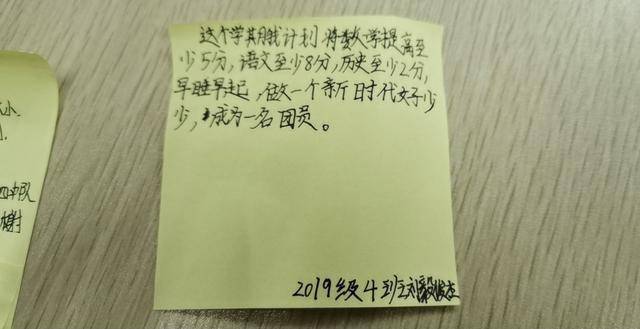 这个学期我计划将数学提高至
少5分,语文至少8分,历史至少2分,
早睡早起,做一个新时代好少
少,成为一名团员。
2019级4班刘毅俊杰